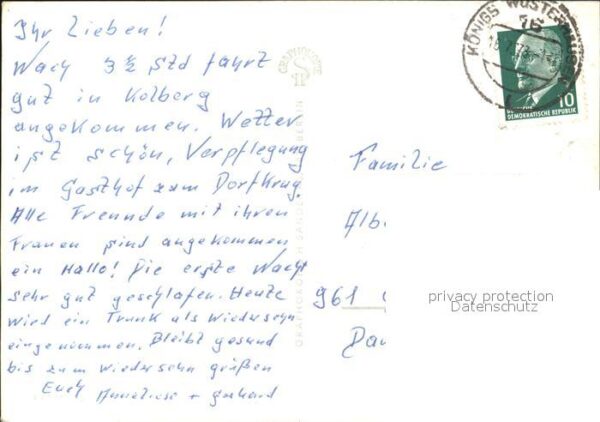 Ihr Lieben!
Nach 3 ½ Std fahrt
gut in Kolberg
angekommen. Wetter
ist schön, Verpflegung
im Gasthof zum Dorfkrug
Alle Freunde mit ihren
Frauen sind angekommen
ein Hallo! Die erste Nacht
sehr gut geschlafen. Heute
wird ein Trunk als Wiedersehn
eingenommen. Bleibt gesund
bis zum Wiedersehn grüßen
Euch Anneliese + Gerhard
KÖNIGS WUSTERHAUSEN
10
DEMOKRATISCHE REPUBLIK
Familie
Alb
961
privacy protection
Datenschutz